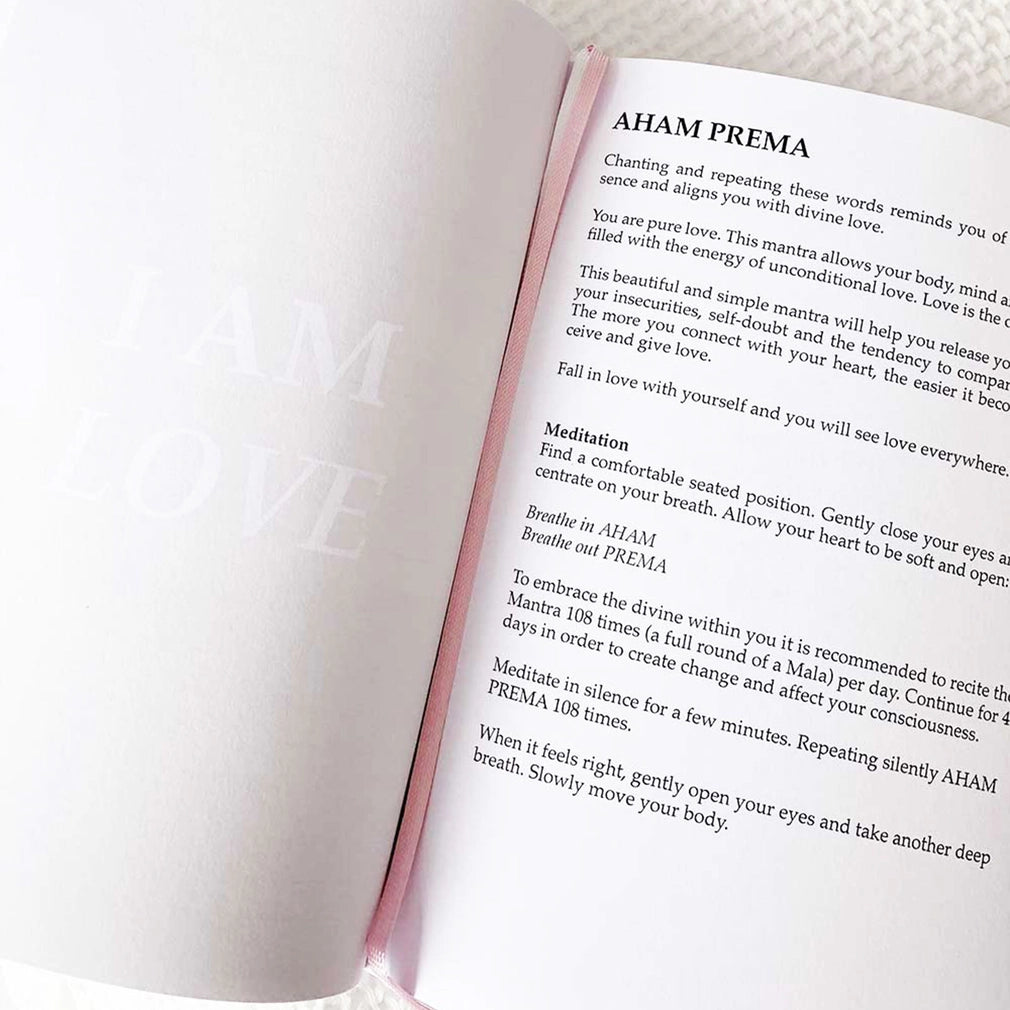 I AM
LOVE
AHAM PREMA
Chanting and repeating these words reminds you of
sence and aligns you with divine love.
You are pure love. This mantra allows your body, mind
filled with the energy of unconditional love. Love is the
This beautiful and simple mantra will help you release
your insecurities, self-doubt and the tendency to
The more you connect with your heart, the easier it
ceive and give love.
Fall in love with yourself and you will see love everywhere.
Meditation
Find a comfortable seated position. Gently close your eyes
centrate on your breath. Allow your heart to be soft and open:
Breathe in AHAM
Breathe out PREMA
To embrace the divine within you it is recommended to recite
Mantra 108 times (a full round of a Mala) per day. Continue for
days in order to create change and affect your consciousness.
Meditate in silence for a few minutes. Repeating silently AHAM
PREMA 108 times.
When it feels right, gently open your eyes and take another deep
breath. Slowly move your body.